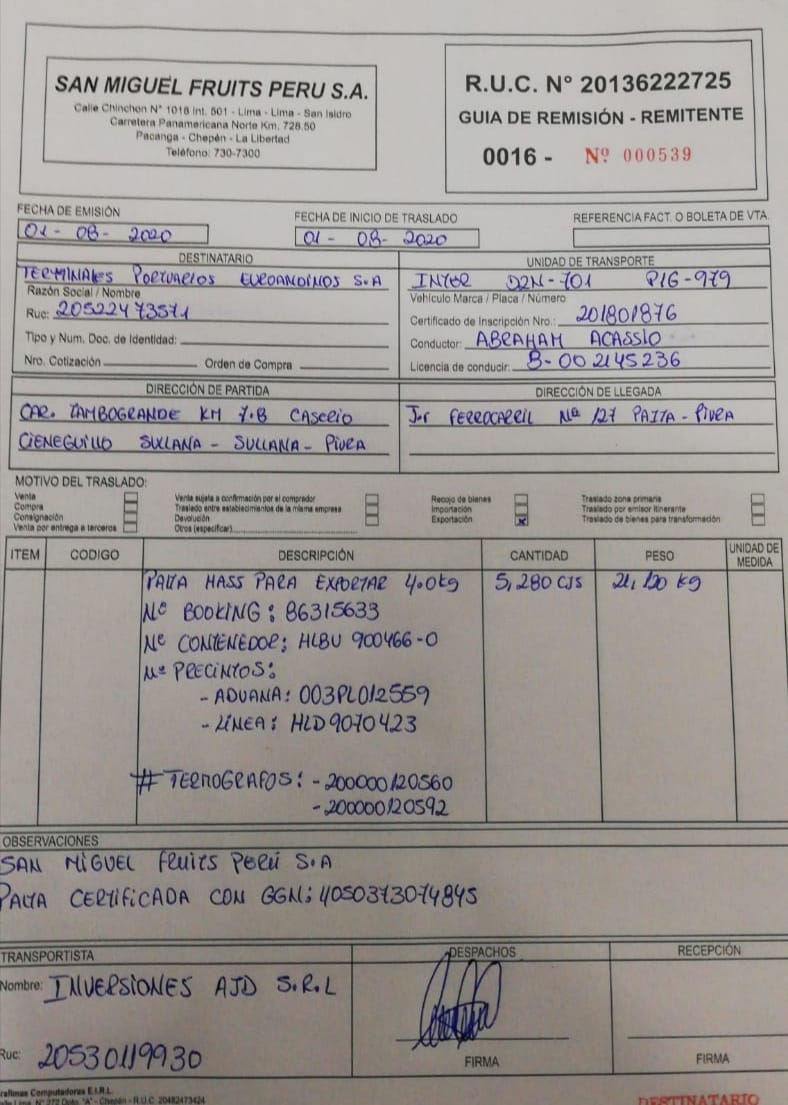 SAN MIGUEL FRUITS PERU S.A.
Calle Chinchon N° 1018 Int. 501 - Lima - Lima - San Isidro
Carretera Panamericana Norte Km. 728.50
Pacanga - Chepén - La Libertad
Teléfono: 730-7300
R.U.C. N° 20136222725
GUIA DE REMISIÓN - REMITENTE
0016 - Nº 000539
FECHA DE EMISIÓN
01 - 08 - 2020
FECHA DE INICIO DE TRASLADO
01 - 08 - 2020
REFERENCIA FACT. O BOLETA DE VTA.
DESTINATARIO
TERMINALES PORTUARIOS EUROANDINOS S.A
Razón Social / Nombre
Ruc: 20522473571
Tipo y Num. Doc. de Identidad:
Nro. Cotización Orden de Compra
UNIDAD DE TRANSPORTE
INTER D2N-701 P1G-979
Vehículo Marca / Placa / Número
Certificado de Inscripción Nro.: 201801876
Conductor: ABRAHAM ACASSIO
Licencia de conducir: B-002145236
DIRECCIÓN DE PARTIDA
CAR. TAMBOGRANDE KM 7.8 CASERIO
CIENEGUILLO SULLANA - SULLANA - PIURA
DIRECCIÓN DE LLEGADA
Jr FERROCARRIL Nº 127 PAITA - PIURA
MOTIVO DEL TRASLADO:
Venta
Compra
Consignación
Venta por entrega a terceros
Venta sujeta a confirmación por el comprador
Traslado entre establecimientos de la misma empresa
Devolución
Otros (especificar)
Recojo de bienes
Importación
Exportación X
Traslado zona primaria
Traslado por emisor itinerante
Traslado de bienes para transformación
ITEM CODIGO DESCRIPCIÓN CANTIDAD PESO UNIDAD DE MEDIDA
PALTA HASS PARA EXPORTAR 4.0kg 5,280 CJS 21,120 kg
Nº BOOKING: 86315633
Nº CONTENEDOR: HLBU 900466-0
Nº PRECINTOS:
- ADUANA: 003PL012559
- LÍNEA: HLD9070423
# TERMOGRAFOS: - 200000120560
- 200000120592
OBSERVACIONES
SAN MIGUEL FRUITS PERÚ S.A
PALTA CERTIFICADA CON GGN: 4050373074845
TRANSPORTISTA
Nombre: INVERSIONES AJD S.R.L
Ruc: 20530119930
DESPACHOS
FIRMA
RECEPCIÓN
FIRMA
Computadores E.I.R.L.
N° 272 Dpto. "A" - Chepén - R.U.C. 20482473424
DESTINATARIO